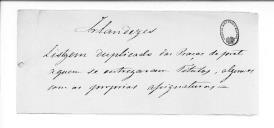 Irlandezes
Listagem duplicada das Praças da parte
a quem se entregaram Titulos, algumas
com as proprias assignaturas —